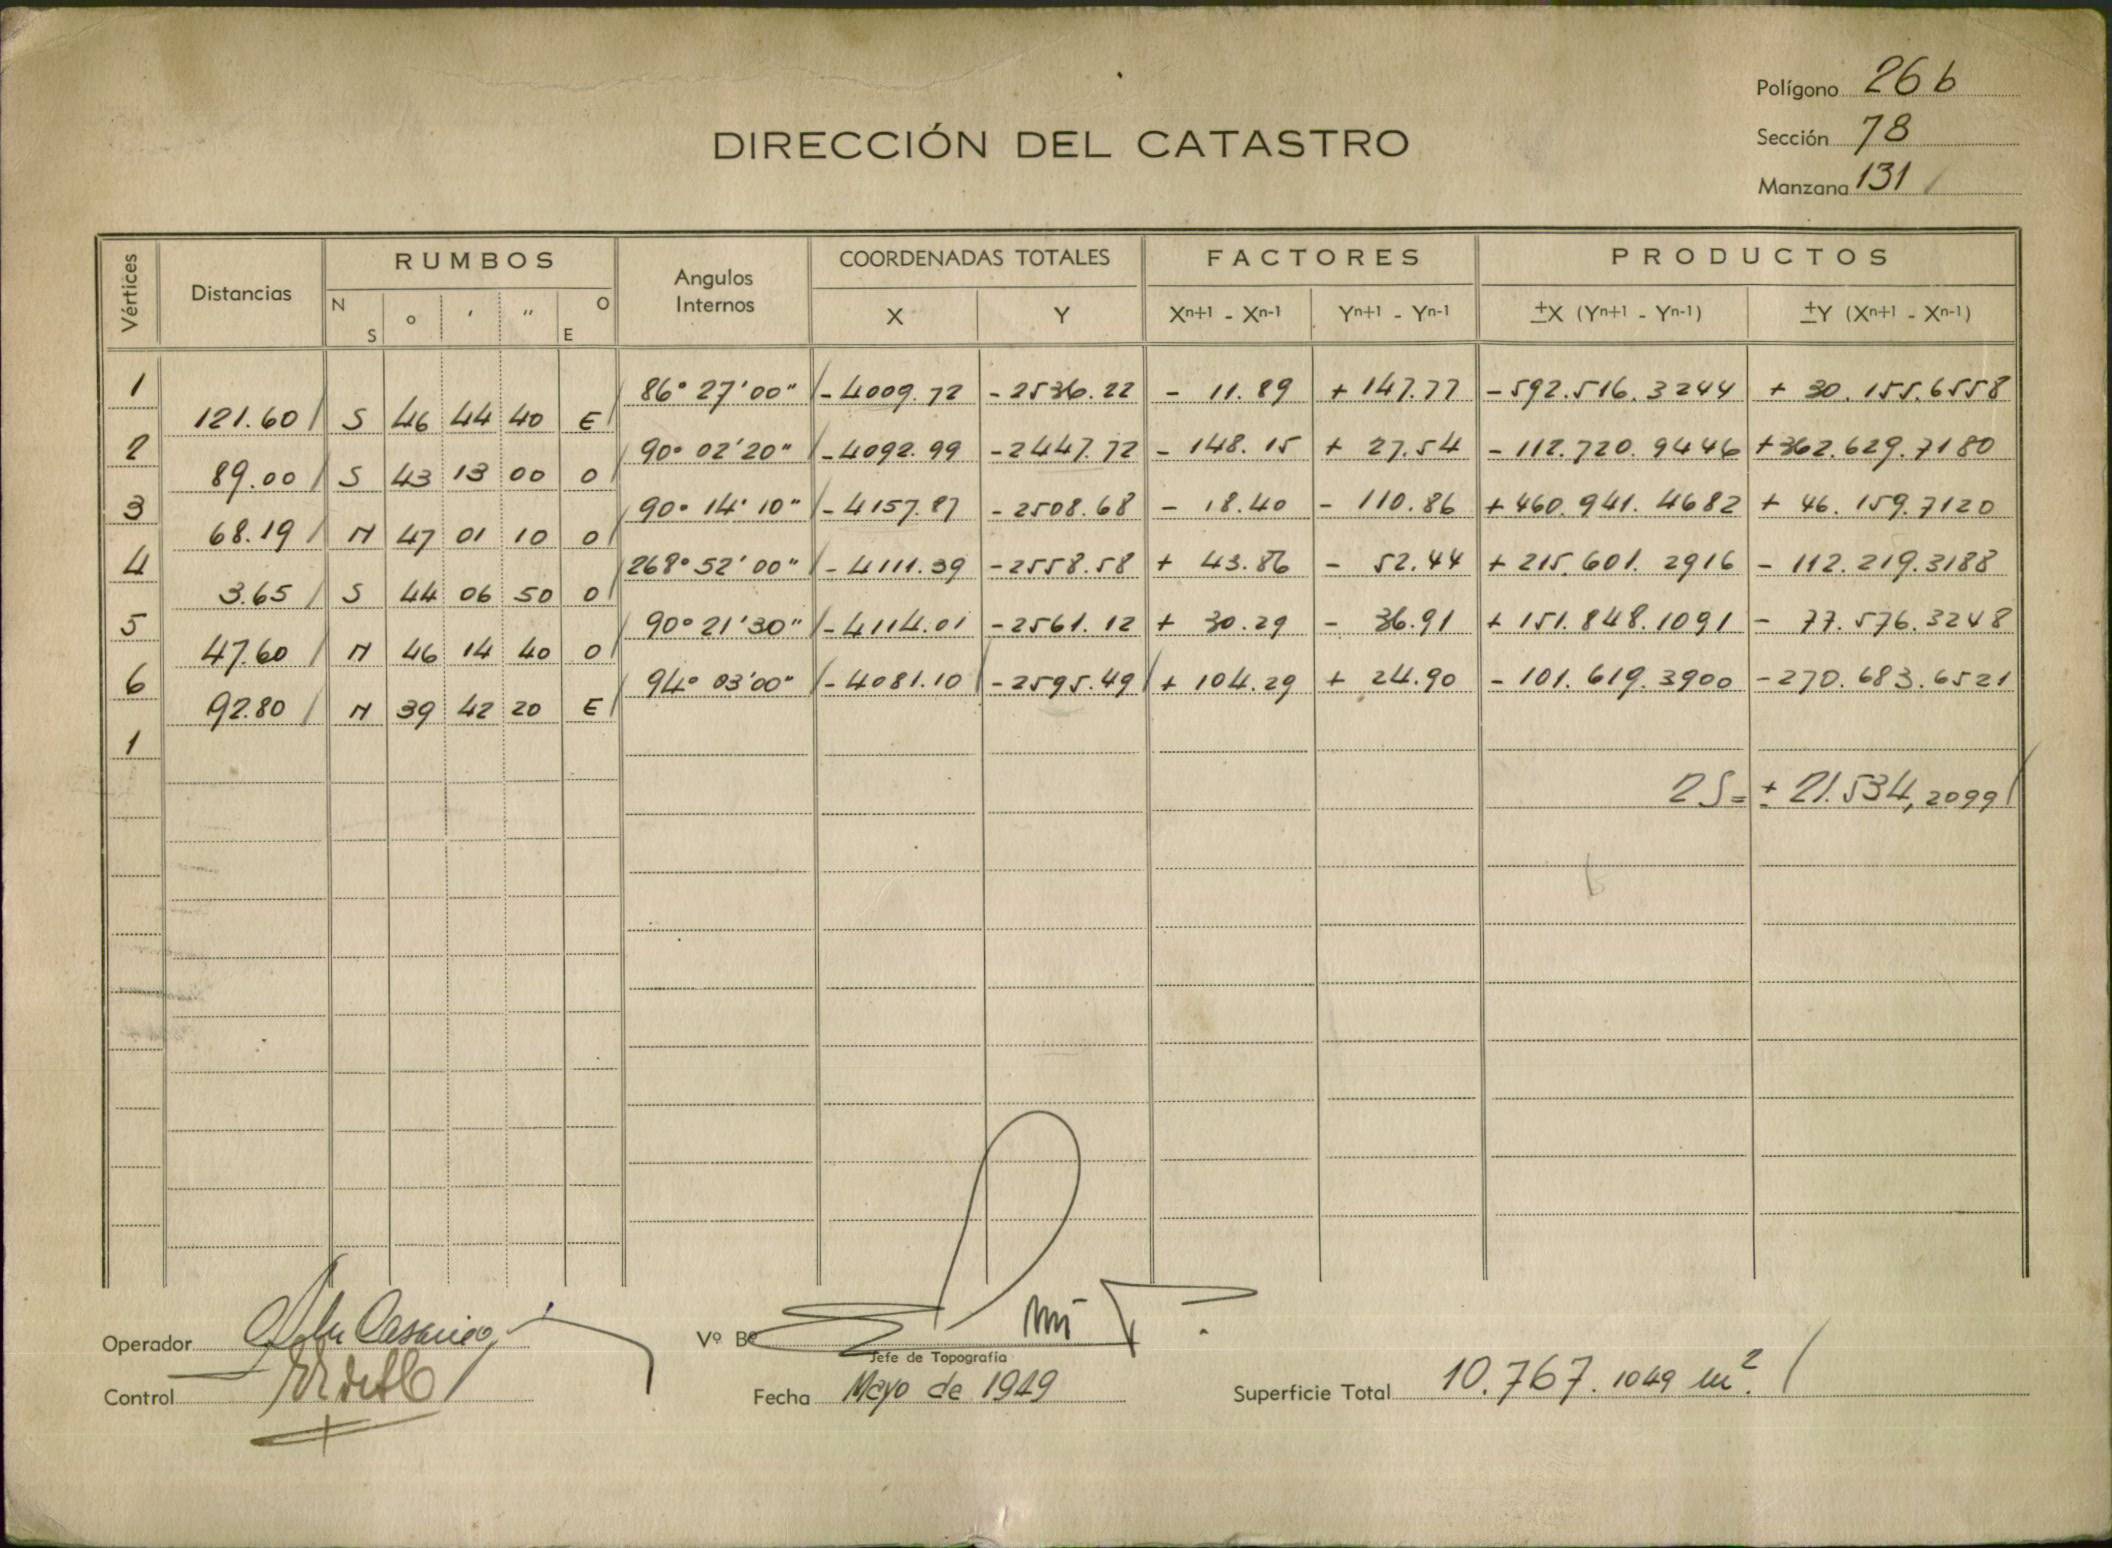 Polígono 26 b
DIRECCIÓN DEL CATASTRO
Sección 78
Manzana 131
Vértices Distancias RUMBOS Angulos Internos COORDENADAS TOTALES FACTORES PRODUCTOS
N S ° ' " E O X Y Xn+1 - Xn-1 Yn+1 - Yn-1 ±X (Yn+1 - Yn-1) ±Y (Xn+1 - Xn-1)
1 86° 27' 00" - 4009.72 - 2536.22 - 11.89 + 147.77 - 592.516.3244 + 30.155.6558
121.60 S 46 44 40 E
2 90° 02' 20" - 4092.99 - 2447.72 - 148.15 + 27.54 - 112.720.9446 + 362.629.7180
89.00 S 43 13 00 O
3 90° 14' 10" - 4157.87 - 2508.68 - 18.40 - 110.86 + 460.941.4682 + 46.159.7120
68.19 N 47 01 10 O
4 268° 52' 00" - 4111.39 - 2558.58 + 43.86 - 52.44 + 215.601.2916 - 112.219.3188
3.65 S 44 06 50 O
5 90° 21' 30" - 4114.01 - 2561.12 + 30.29 - 36.91 + 151.848.1091 - 77.576.3248
47.60 N 46 14 40 O
6 94° 03' 00" - 4081.10 - 2595.49 + 104.29 + 24.90 - 101.619.3900 - 270.683.6521
92.80 N 39 42 20 E
1
2S= ± 21.534,2099
Operador
Vº Bº
Jefe de Topografía
Control
Fecha Mayo de 1949
Superficie Total 10.767.1049 m².